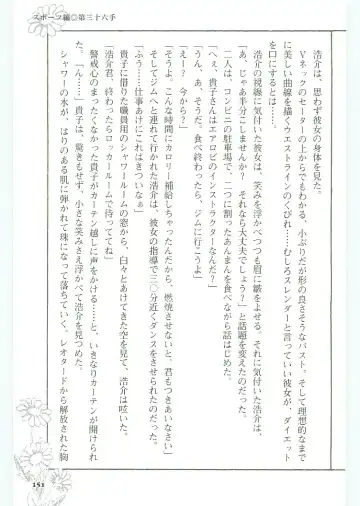 スポーツ編◎第三十六手
浩介は、思わず彼女の身体を見た。
Vネックのセーターの上からでもわかる、小ぶりだが形の良さそうなバスト。そして理想的なまで
に美しい曲線を描くウエストラインのくびれ……むしろスレンダーと言っていい彼女が、ダイエット
を口にするとは……。
「あ、じゃあ半分こしませんか？　それなら大丈夫でしょう？」
浩介の視線に気付いた彼女は、笑みを浮かべつつも眉に皺をよせる。それに気付いた浩介は、
と話題を変えたのだった。
二人は、コンビニの駐車場で、二つに割ったあんまんを食べながら話はじめた。
「へぇ、貴子さんはエアロビのインストラクターなんだ？」
「うん、あ、そうだ。食べ終わったら、ジムに行こうよ」
「え－？　今から？」
「そうよ。こんな時間にカロリー補給しちゃったんだから、燃焼させないと。君もつきあいなさい」
そしてジムへと連れて行かれた浩介は、彼女の指導で三〇分近くダンスをさせられたのだった。
「ふぅ……仕事あけにこれはきついなぁ」
貴子に借りた職員用のシャワールームの窓から、白々とあけてきた空を見て、浩介は呟いた。
「浩介君、終わったらロッカールームで待っててね」
警戒心のまったくなかった貴子がカーテン越しに声をかける……と、いきなりカーテンが開けられ
た。「ん……」貴子は、驚きもせず、小さな笑みさえ浮かべて浩介を見つめた。
シャワーの水が、はりのある肌に弾かれて珠になって落ちていく。レオタードから解放された胸
151